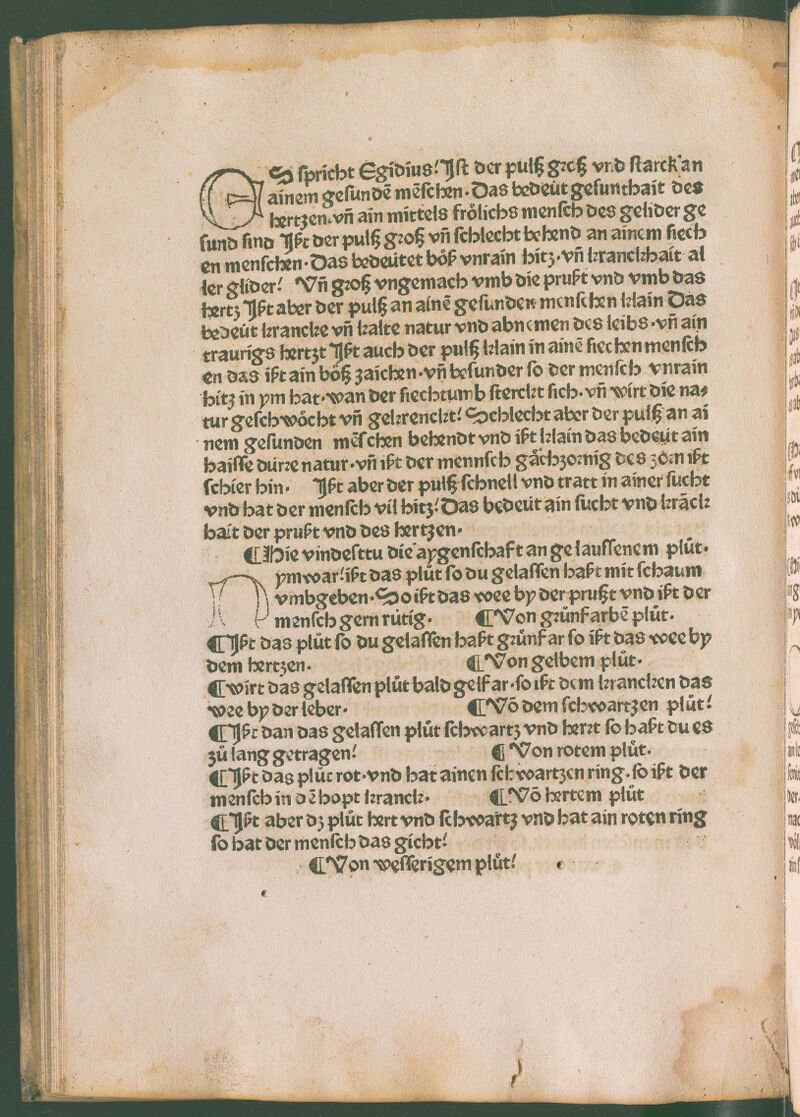 ES spricht Egidius! Jst der pulß groß vnd starck an
ainem gesundē mēschen. Das bedeüt gesunthait des
hertzen. vñ ain mittels frölichs mensch des gelider ge
sund sind Jſt der pulß groß vñ schlecht behend an ainem siech
en menschen. Das bedeütet böß vnrain hitz. vñ kranckhait al
ler glider! Vñ groß vngemach vmb die prust vnd vmb das
hertz Jst aber der pulß an ainē gesunden menschen klain Das
bedeüt krancke vñ kalte natur vnd abnemen des leibs. vñ ain
traurigs hertzt Jst auch der pulß klain in ainē siechen mensch
en das ist ain böß zaichen. vñ besunder so der mensch vnrain
hitz in ym hat. wan der siechtumb sterckt sich. vñ wirt die na⸗
tur geschwöcht vñ gekrenckt! Schlecht aber der pulß an ai
nem gesunden mēschen behendt vnd ist klain das bedeüt ain
haisse dürre natur. vñ ist der mennsch gächzornig des zorn ist
schier hin. Jst aber der pulß schnell vnd tratt in ainer sucht
vnd hat der mensch vil hitz! Das bedeüt ain sucht vnd krāck
hait der prust vnd des hertzen.
¶ Hie vindesttu die aygenschaft an gelaussenem plůt.
Nymwar! ist das plůt so du gelassen hast mit schaum
vmbgeben. So ist das wee by der prußt vnd ist der
mensch gern rütig. ¶ Von grünfarbē plůt.
¶ Jst das plůt so du gelassen hast grünfar so ist das wee by
dem hertzen. ¶ Von gelbem plůt.
¶ wirt das gelassen plůt bald gelfar. so ist dem krancken das
wee by der leber. ¶ Vō dem schwartzen plůt!
¶ Jst dan das gelassen plůt schwartz vnd hert so hast du es
zů lang getragen! ¶ Von rotem plůt.
¶ Jst das plůt rot. vnd hat ainen schwartzen ring. so ist der
mensch in dē hopt kranck. ¶ Vō hertem plůt
¶ Jst aber dz plůt hert vnd schwartz vnd hat ain roten ring
so hat der mensch das gicht!
¶ Von wesserigem plůt!